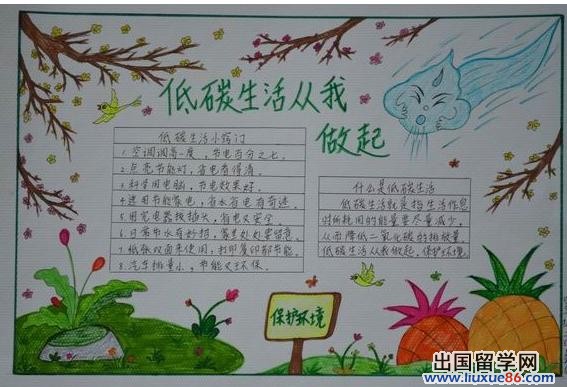 低碳生活从我
做起
低碳生活小窍门
1.空调调高一度,节电百分之七。
2.点亮节能灯,省电看得清。
3.科学用电脑,节电效果好。
4.选用节能家电,省水省电有奇迹。
5.用完电器拔插头,省电又安全。
6.日常节水有妙招,家里处处要留意。
7.纸张双面来使用,打印复印都节能。
8.汽车排量小,节能又环保。
什么是低碳生活
低碳生活就是指生活作息
时所耗用的能量要尽量减少,
从而降低二氧化碳的排放量。
低碳生活从我做起,保护环境。
保护环境
出国留学网
www.liuxue86.com